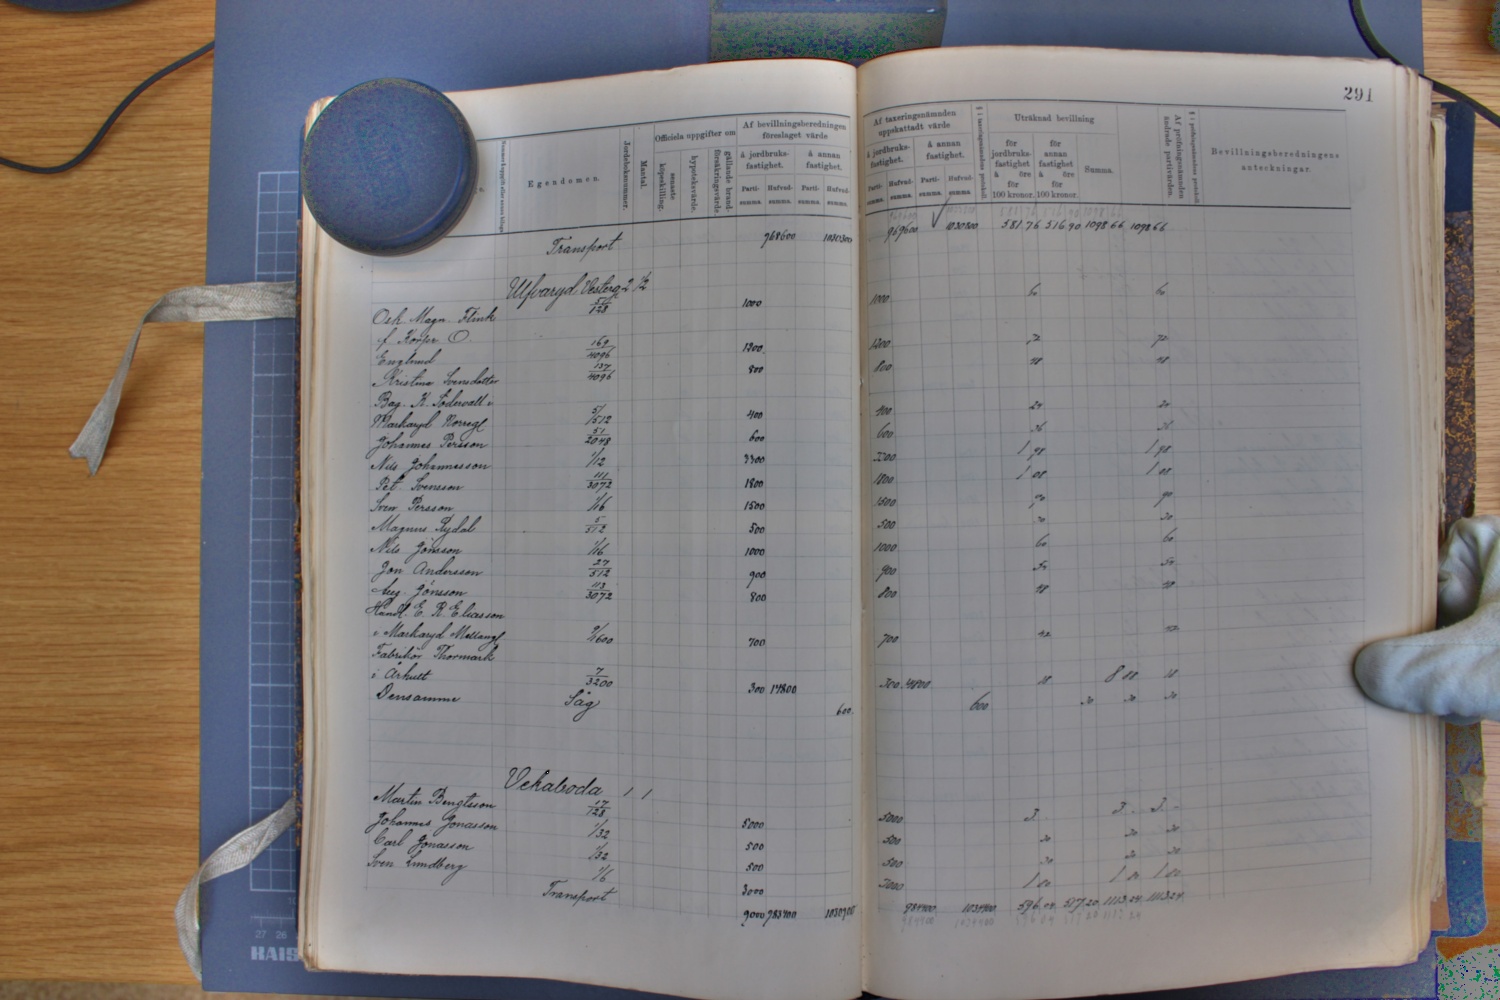 291
Egendomen.
Jordeboksnummer.
Mantal.
Officiela uppgifter om
senaste köpeskilling.
hypoteksvärde.
gällande brandförsäkringsvärde.
Af bevillningsberedningen
föreslaget värde
å jordbruks-
fastighet.
å annan
fastighet.
Parti-
summa.
Hufvud-
summa.
Parti-
summa.
Hufvud-
summa.
Af taxeringsnämnden
uppskattadt värde
å jordbruks-
fastighet.
å annan
fastighet.
Parti-
summa.
Hufvud-
summa.
Parti-
summa.
Hufvud-
summa
Uträknad bevillning
för
jordbruks-
fastighet
à öre
för
100 kronor.
för
annan
fastighet
à öre
för
100 kronor.
Summa.
Af pröfningsnämnden
ändrade partivärden.
Bevillningsberedningens
anteckningar.
Transport 969600 1030300 581.76 516 90 1098 66 1098 66
Ulfvaryd Vesterg 2 1/2
Osk Magn. Flink 51/128 1000 1000 60 60
f Korpr
Englund 169/4096 1200 1200 72 72
Kristina Svensdotter 137/4096 800 800 48 48
Bag. K. Södervall i
Markaryd Norregl 5/512 400 400 24 24
Johannes Persson 51/2048 600 600 36 36
Nils Johannesson 1/12 3300 3300 1 98 1 98
Pet. Svensson 111/3072 1800 1800 1 08 1 08
Sven Persson 1/16 1500 1500 90 90
Magnus Rydal 5/512 500 500 30 30
Nils Jönsson 1/16 1000 1000 60 60
Jon Andersson 27/512 900 900 54 54
Aug. Jönsson 113/3072 800 800 48 48
Handl. E. R. Eliasson
i Markaryd Mellangl 9/1600 700 700 42 42
Fabrikör Thormark
i Århult 7/3200 300 14800 300 14800 18 8 88 18
Densamme Såg 600 600 30 30 30
Vekaboda 1 1
Martin Bengtsson 17/128 5000 5000 3. 3. - 3. -
Johannes Jonasson 1/32 500 500 30 30 30
Carl Jonasson 1/32 500 500 30 30 30
Sven Lundberg 1/6 3000 3000 1 80 1 80 1 80
Transport 9000 1113.24 1113.24